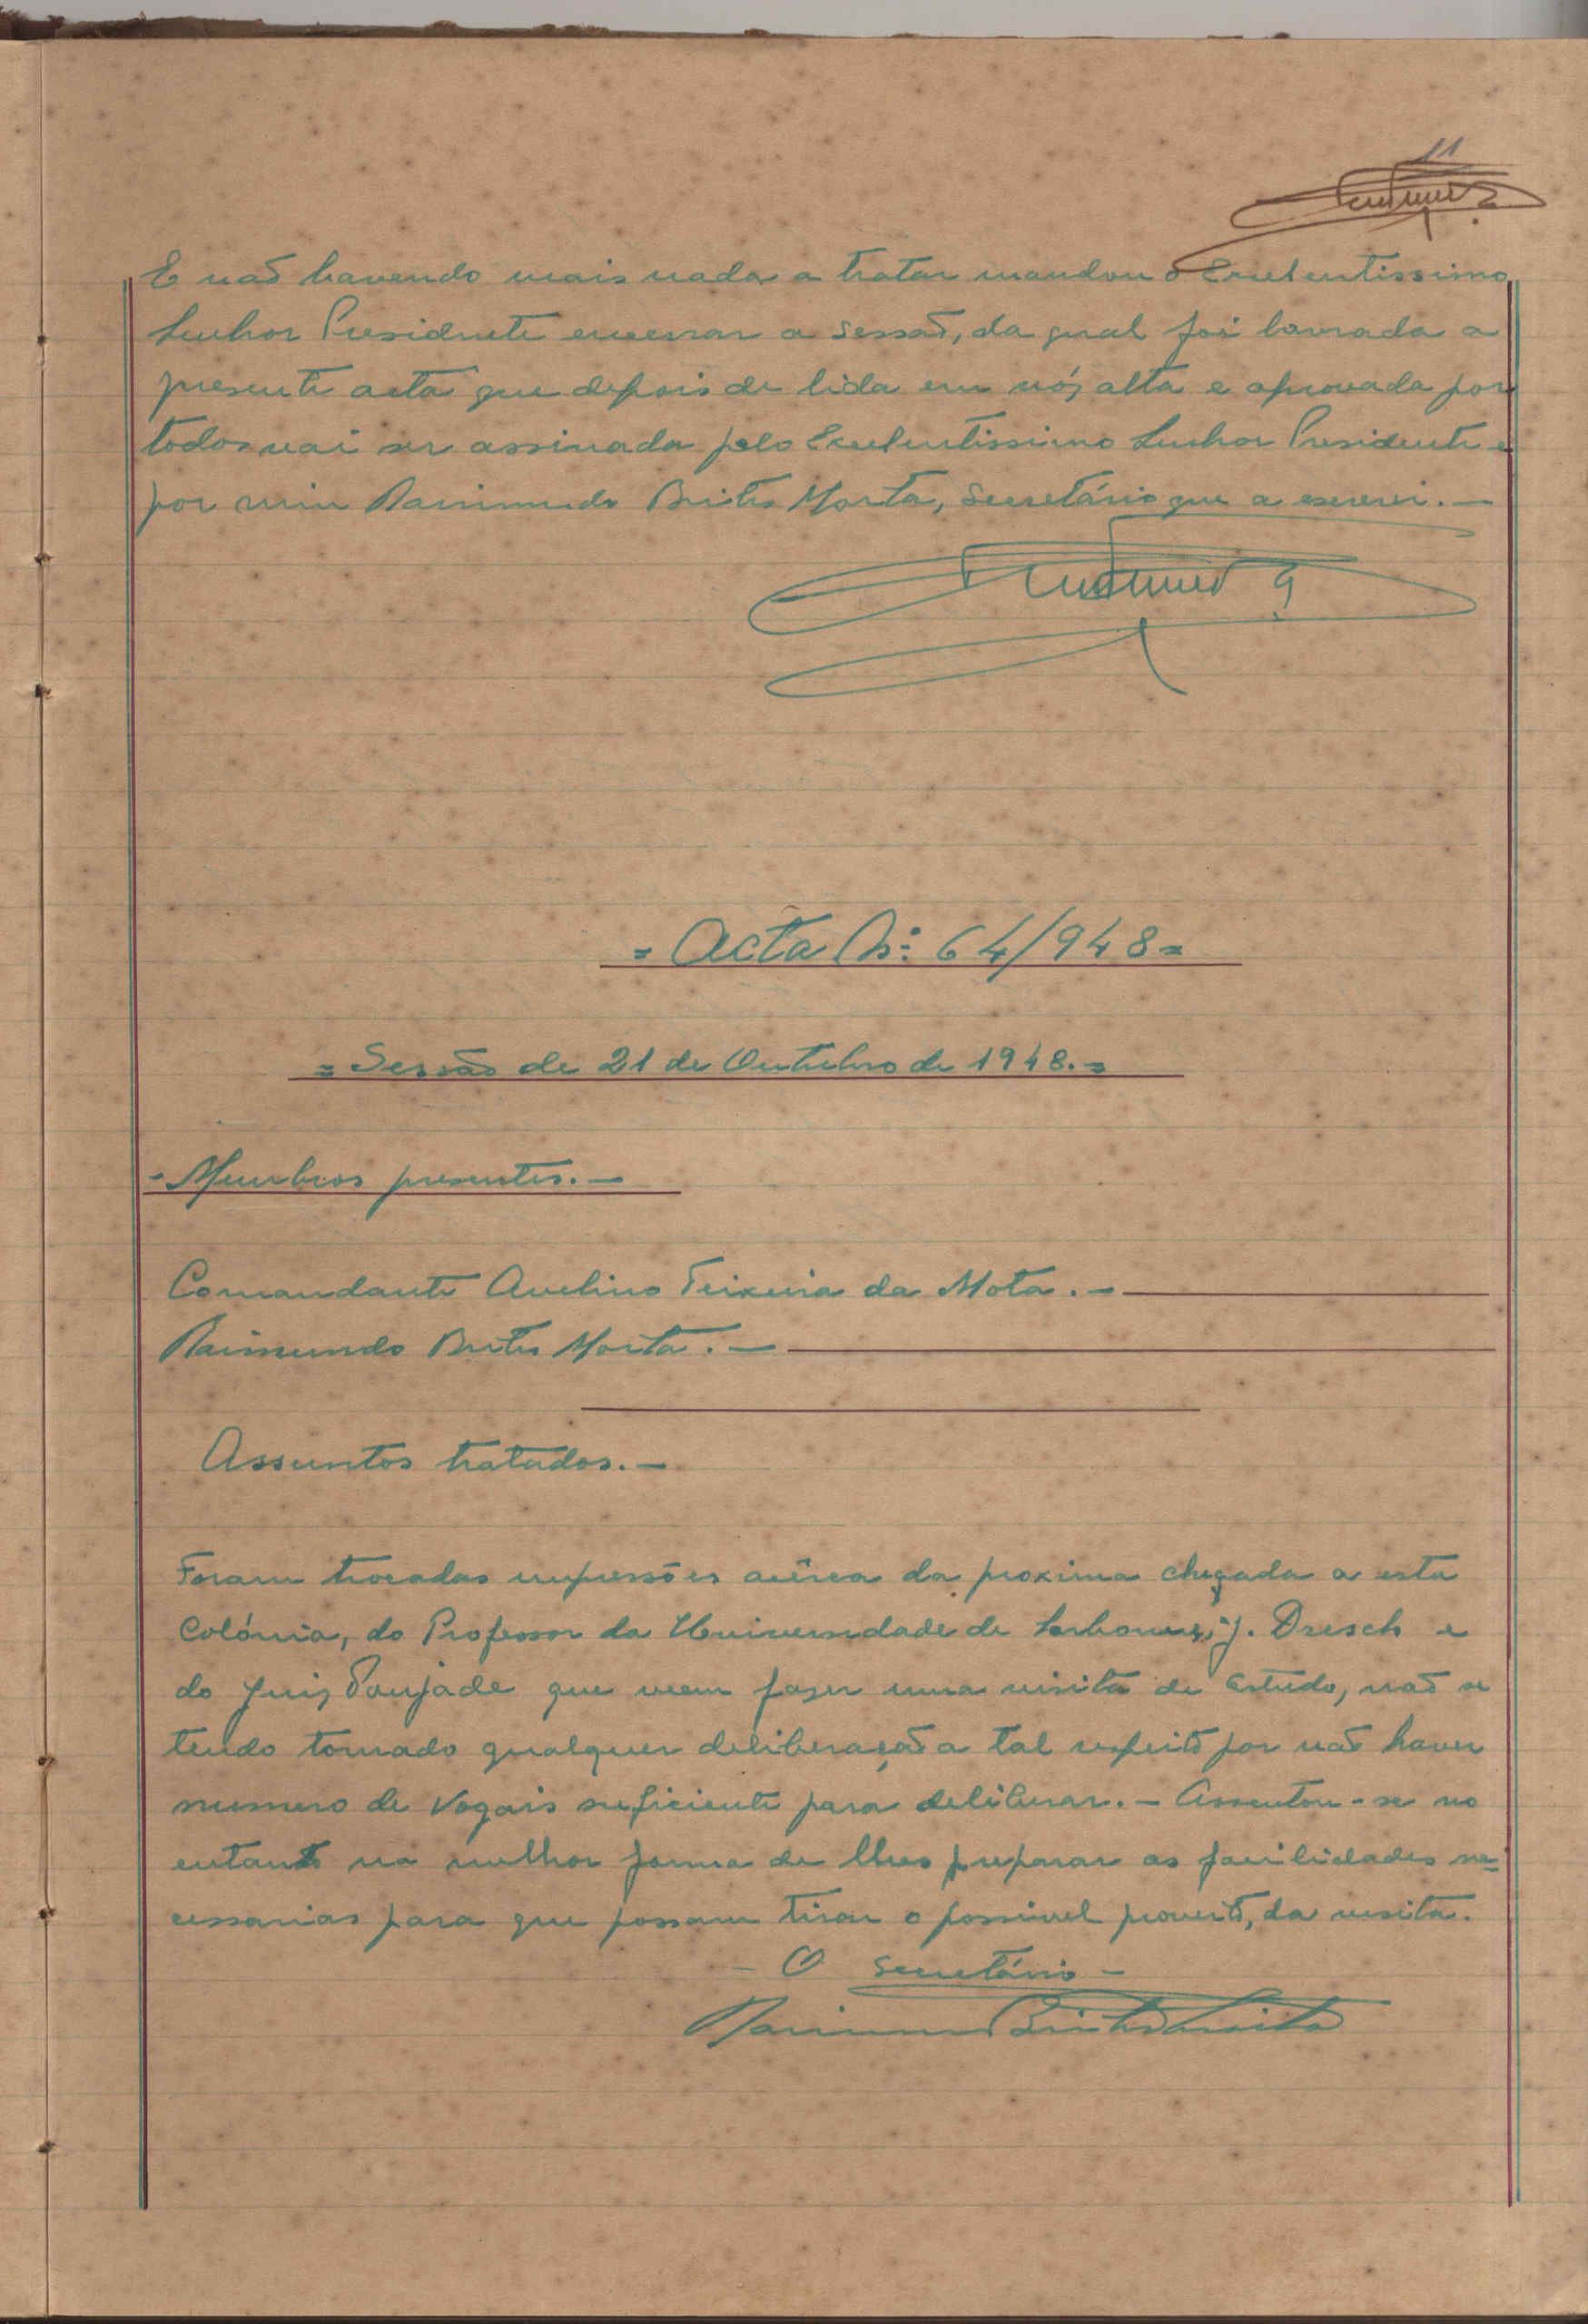 11
E não havendo mais nada a tratar mandou o Excelentissimo
Senhor Presidente encerrar a sessão, da qual foi lavrada a
presente acta que depois de lida em vóz alta e aprovada por
todos vai ser assinada pelo Excelentissimo Senhor Presidente e
por mim Raimundo Brites Morta, Secretário que a escrevi. —
= Acta Nº: 64/948 =
= Sessão de 21 de Outubro de 1948. =
- Membros presentes. —
Comandante Avelino Teixeira da Mota. —
Raimundo Brites Morta. —
Assuntos tratados. —
Foram trocadas impressões acêrca da proxima chegada a esta
Colónia, do Professor da Universidade de J. Dresch e
do Juiz Poujade que veem fazer uma visita de estudo, não se
tendo tomado qualquer deliberação a tal respeito por não haver
numero de Vogais suficiente para deliberar. — Assentou-se no
entanto na melhor forma de lhes preparar as facilidades ne=
cessarias para que possam tirar o possivel proveito, da visita.
- O Secretário -